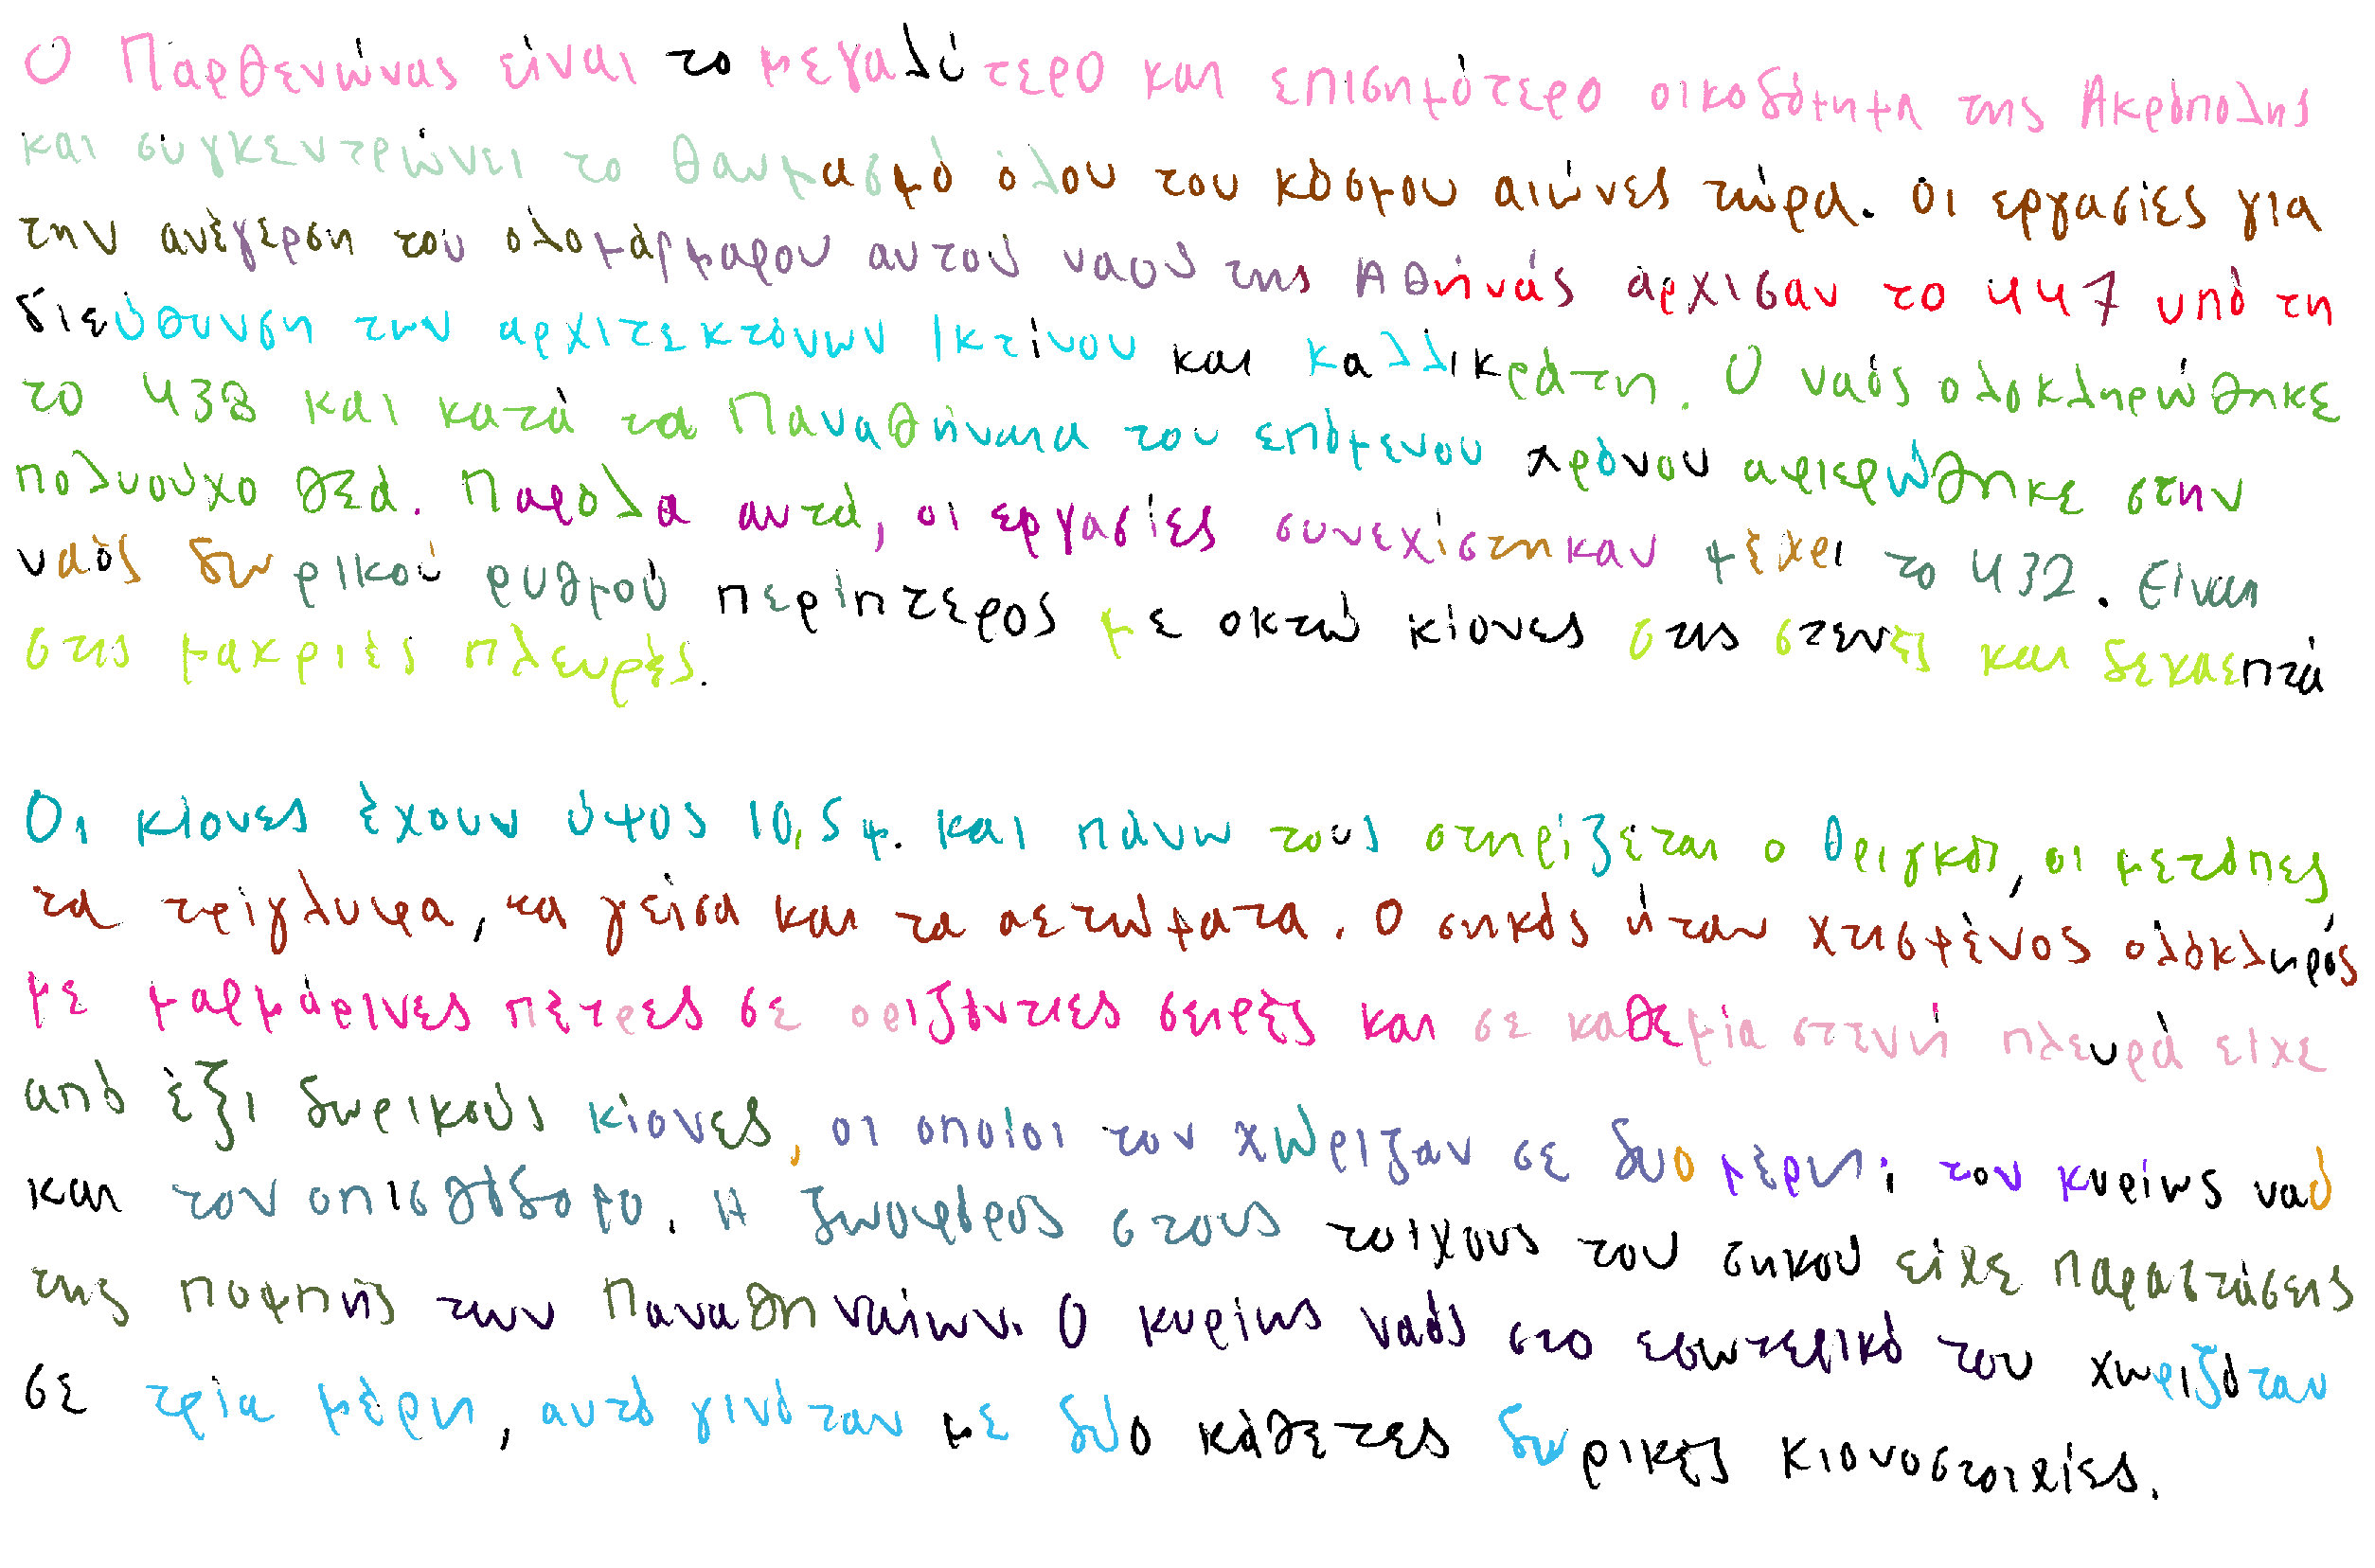 Ο Παρθενώνας είναι το μεγαλύτερο και επισημότερο οικοδόμημα της Ακρόπολης
και συγκεντρώνει το θαυμασμό όλου του κόσμου αιώνες τώρα. Οι εργασίες για
την ανέγερση του ολομάρμαρου αυτού ναού της Αθηνάς άρχισαν το 447 υπό τη
διεύθυνση των αρχιτεκτόνων Ικτίνου και Καλλικράτη. Ο ναός ολοκληρώθηκε
το 438 και κατά τα Παναθήναια του επόμενου χρόνου αφιερώθηκε στην
πολυούχο θεά. Παρόλα αυτά, οι εργασίες συνεχίστηκαν μέχρι το 432. Είναι
ναός δωρικού ρυθμού περίπτερος με οκτώ κίονες στις στενές και δεκαεπτά
στις μακριές πλευρές.
Οι κίονες έχουν ύψος 10,5 μ. και πάνω τους στηρίζεται ο θριγκός, οι μετόπες
τα τρίγλυφα, τα γείσα και τα αετώματα. Ο σηκός ήταν χτισμένος ολόκληρός
με μαρμάρινες πέτρες σε οριζόντιες σειρές και σε καθεμία στενή πλευρά είχε
από έξι δωρικούς κίονες, οι οποίοι τον χώριζαν σε δυο μέρη; τον κυρίως ναό
και τον οπισθόδομο. Η ζωοφόρος στους τοίχους του σηκού είχε παραστάσεις
της πομπής των Παναθηναίων. Ο κυρίως ναός στο εσωτερικό του χωριζόταν
σε τρία μέρη, αυτό γινόταν με δύο κάθετες δωρικές κιονοστοιχίες.